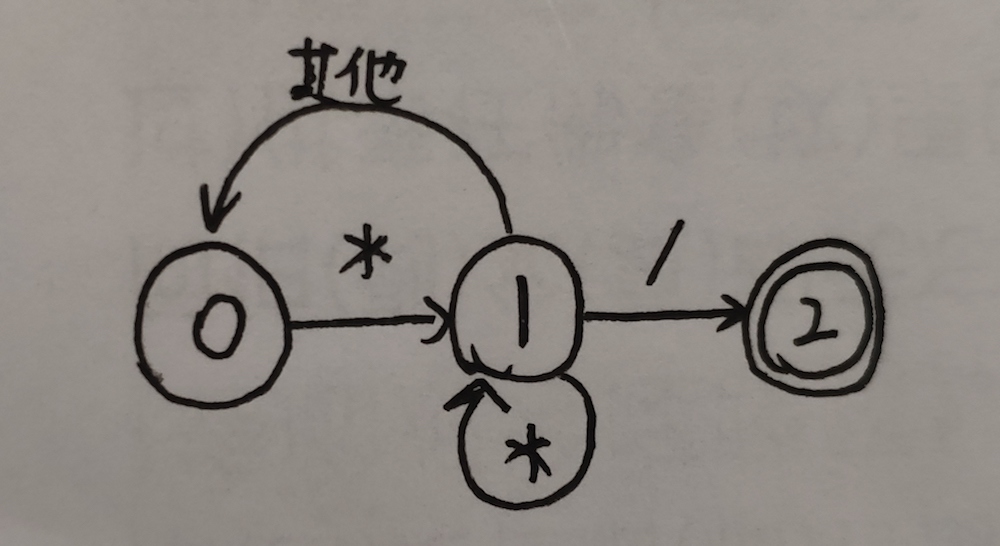 其他
* /
0 1 2
*